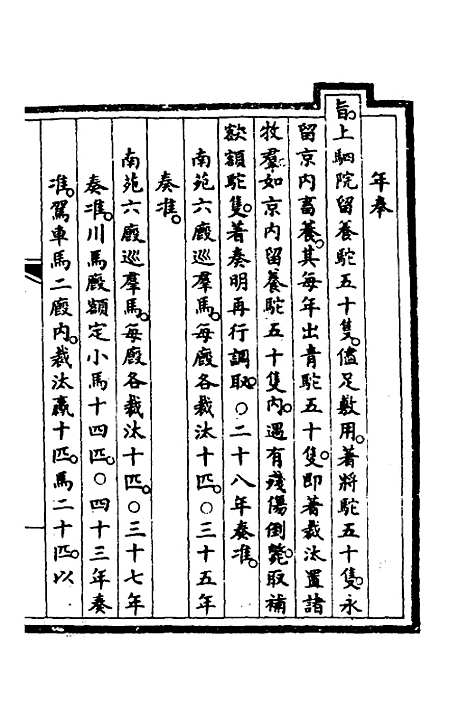 年奉
旨上駟院留養駝五十隻。儘足敷用。著將駝五十隻永
留京内畜養。其每年出青駝五十隻。即著裁汰置諸
牧羣。如京内留養駝五十隻内。遇有殘傷倒斃。取補
欲額駝隻。著奏明再行調取。○二十八年奏准。
南苑六廄巡羣馬。每廄各裁汰十匹。○三十五年
奏准。
南苑六廄巡羣馬。每廄各裁汰十匹。○三十七年
奏准。川馬廄額定小馬十四匹。○四十三年奏
准。駕車馬二廄内。裁汰驘十匹。馬二十匹。以